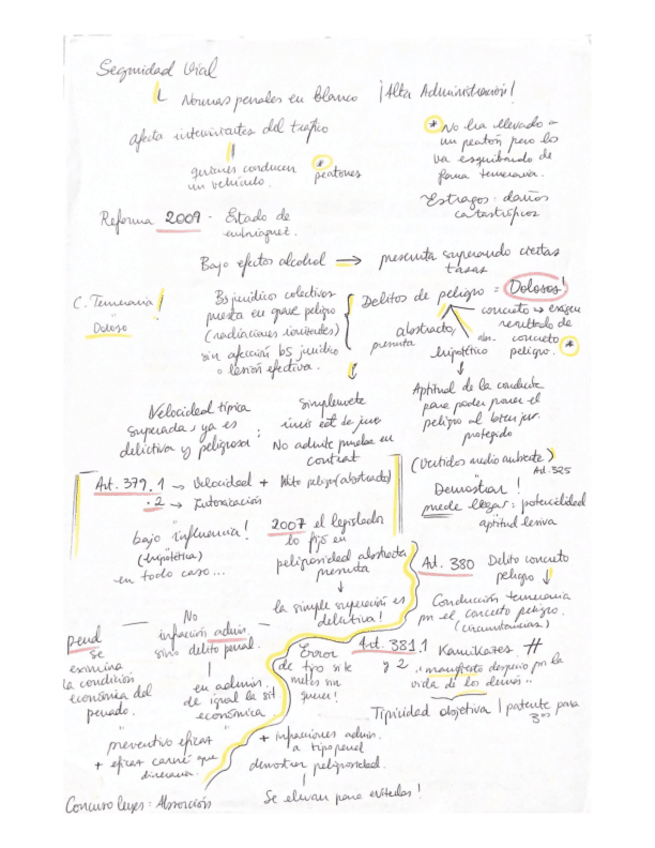 Seguridad Vial
Normas penales en blanco ¡Alta Administración!
afecta intervinientes del tráfico
quienes conducen
un vehículo.
* peatones
* No ha llevado a
un peatón pero lo
va esquibando de
forma temeraria.
Estragos: daños
catastróficos
Reforma 2009 - Estado de
embriaguez.
Bajo efectos alcohol → presunta superando ciertas
tasas
C. Temeraria!
Doloso
Bs jurídicos colectivos
puesta en grave peligro
(radiaciones ionizantes)
sin afección bs jurídico
o lesión efectiva.
Delitos de peligro = Dolosos!
abstracto,
presunta
hipotético
abs.
concreto → exigen
resultado de
concreto
peligro. *
Aptitud de la conducta
para poder poner el
peligro al bien jur.
protegido
Velocidad típica
superada, ya es
delictiva y peligrosa:
Simplemente
iuris et de jure
No admite prueba en
contrat
(Vertidos medio ambiente)
Art. 325
Demostrar!
puede llegar: potencialidad
aptitud lesiva
Art. 379.1 → Velocidad + peligro (abstracto)
.2 → Intoxicación
bajo "influencia"!
(hipotética)
en todo caso...
2007 el legislador
lo fijó en
peligrosidad abstracta
presunta
↓
la simple superación es
delictiva!
Art. 380 Delito concreto
peligro ↓
Conducción temeraria
pn el concreto peligro.
(circunstancias)
Art. 381.1 Kamikazes #
y 2 "manifiesto desprecio pn la
vida de los demás"
Tipicidad objetiva | patente para
3os
Error
de tipo si te
metes sin
querer!
No
infracción admin.
sino delito penal.
|
en admin.
da igual la sit
económica
penal
se
examina
la condición
económica del
penado.
"preventivo eficaz"
+ eficaz carné que
dineraria.
+ infracciones admin.
a tipo penal
demostrar peligrosidad.
|
Se elevan para evitarlas!
Concurso leyes: Absorción